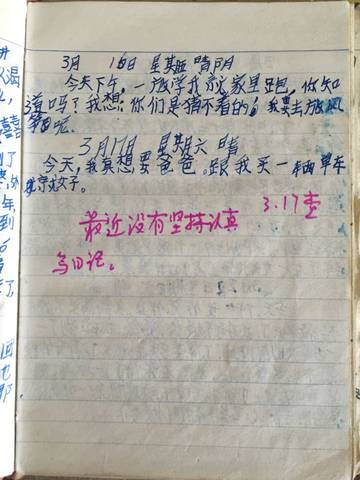 3月 16日 星期五 晴阴
今天下午,一放学我就家里跑,你知
道吗?我想:你们是猜不着的!我要去放风
筝呢。
3月17日 星期六 晴
今天,我真想要爸爸跟我买一辆单车
就好。
3.17查
最近没有坚持认真
写日记。